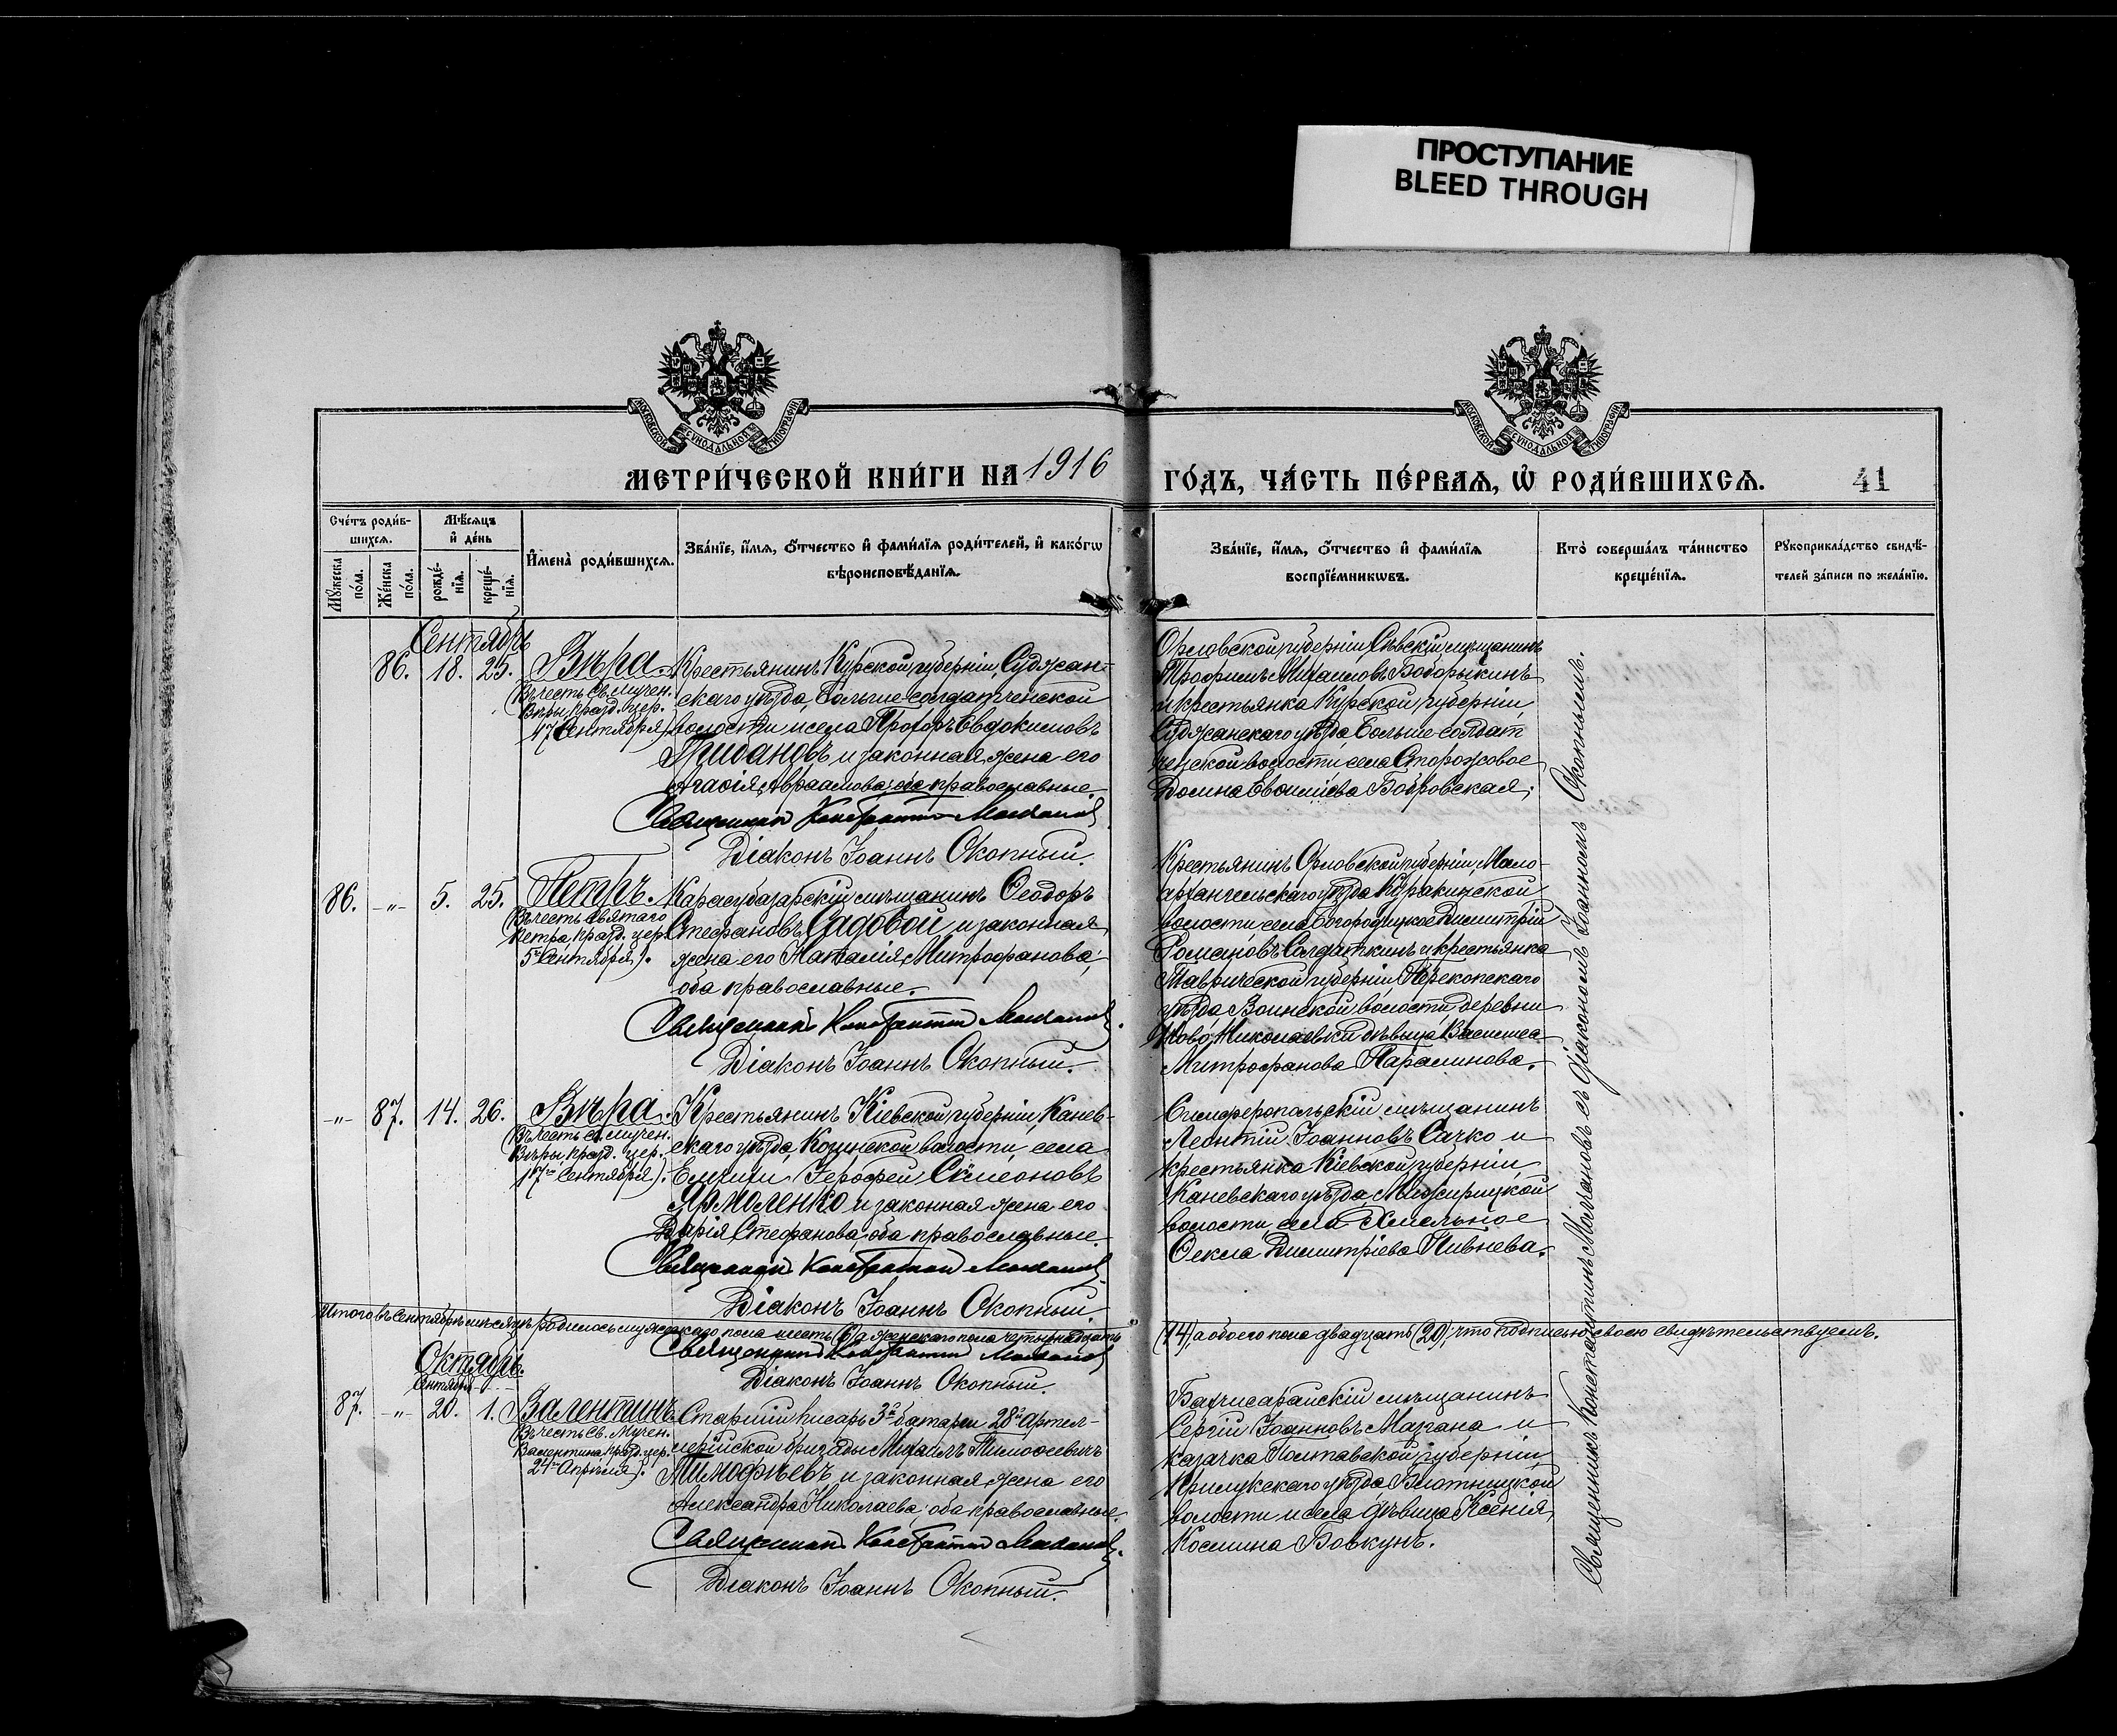 ПРОСТУПАНИЕ
BLEED THROUGH
МОСКОВСКОЙ СУНОДАЛЬНОЙ ТИПОГРАФІИ
МОСКОВСКОЙ СУНОДАЛЬНОЙ ТИПОГРАФІИ
МЕТРИ́ЧЕСКОЙ КНИ́ГИ НА 1916
ГО́ДЪ, ЧА́СТЬ ПЕ́РВАѦ, Ѽ РОДИ́ВШИХСѦ.
41
Сче́тъ роди́в-
шихсѧ.
Мѣ́сѧцъ
и҆ де́нь
И҆мена̀ роди́вшихсѧ.
Зва́нїе, и҆́мѧ, ѻ҆́тчество и҆ фами́лїѧ роди́телей, и҆ како́гѡ
вѣроисповѣ́данїѧ.
Мꙋ́жеска
по́ла.
Же́нска
по́ла.
рожде́-
нїѧ.
креще́-
нїѧ.
Зва́нїе, и҆́мѧ, ѻ҆́тчество и҆ фами́лїѧ
воспрїе́мникѡвъ.
Кто̀ соверша́лъ та́инство
креще́нїѧ.
Рꙋкоприкла́дство свидѣ́-
телей за́писи по жела́нїю.
Сентябрь
86. 18. 25. Вѣра.
Въ честь св. мучен.
Вѣры, празд. цер.
17 Сентября)
Крестьянинъ Курской губерніи, Суджан-
скаго уѣзда, Больше-солдатченской
волости и села Прохоръ Евдокимовъ
и законная жена его
Агафія Авраамова, оба православные.
Священникъ Константинъ Молчановъ
Діаконъ Іоаннъ Окопный.
Орловской губерніи Сѣвскій мѣщанинъ
Трофимъ Михаиловъ Боборыкинъ
и крестьянка Курской губерніи,
Суджанскаго уѣзда, Больше-солдат
ченской волости, села Сторожовое
Бобровская;
86. -"- 5. 25. Петръ.
Въ честь святаго
Петра, празд. цер.
5 Сентября).
Карасубазарскій мѣщанинъ Ѳеодоръ
Стефановъ Садовой и законная
жена его Наталія Митрофанова;
оба православные.
Священникъ Константинъ Молчановъ.
Діаконъ Іоаннъ Окопный.
Крестьянинъ Орловской губерніи, Мало-
архангельскаго уѣзда Куракинской
волости села Богородицкое Димитрій
Романовъ Солдаткинъ и крестьянка
Таврической губерніи, Перекопскаго
уѣзда Воинской волости деревни
Ново-Николаевки дѣвица Василиса
Митрофанова Парамонова.
-"- 87. 14. 26. Вѣра.
Въ честь св. мучен.
Вѣры празд. цер.
17го Сентября).
Крестьянинъ Кіевской губерніи, Канев-
скаго уѣзда, Козинской волости, села
Емчихи Іерофей Симеоновъ
Ярмоленко и законная жена его
Дарія Стефанова, оба православные.
Священникъ Константинъ Молчановъ
Діаконъ Іоаннъ Окопный
Симферопольскій мѣщанинъ
Леонтій Іоанновъ Сачко и
крестьянка Кіевской губерніи,
Каневскаго уѣзда, Межирицкой
волости, села Хмельное
Ѳекла Димитріева Пивнева.
Итого въ Сентябрѣ мѣсяцѣ родилось мужескаго пола шесть (6), а женскаго пола четырнадцать
(14), а обоего пола двадцать (20), что подписью своею свидѣтельствуемъ.
Священникъ Константинъ Молчановъ
Діаконъ Іоаннъ Окопный.
Октябрь.
Сентября
87. -"- 20. 1. Валентинъ
Въ честь св. Мучен.
Валентина празд. цер.
24го Апрѣля).
Старшій писарь 3й батареи 28й Артил-
лерійской бригады Михаилъ Тимоѳеевичъ
Тимофѣевъ и законная жена его
Александра Николаева; оба православные.
Священникъ Константинъ Молчановъ.
Діаконъ Іоаннъ Окопный.
Бахчисарайскій мѣщанинъ
Сергій Іоанновъ Мазгана и
казачка Полтавской губерніи
Прилукскаго уѣзда
волости и села дѣвица Ксенія
Космина Бовкунъ.
Священникъ Константинъ Молчановъ съ діакономъ Іоанномъ Окопнымъ.